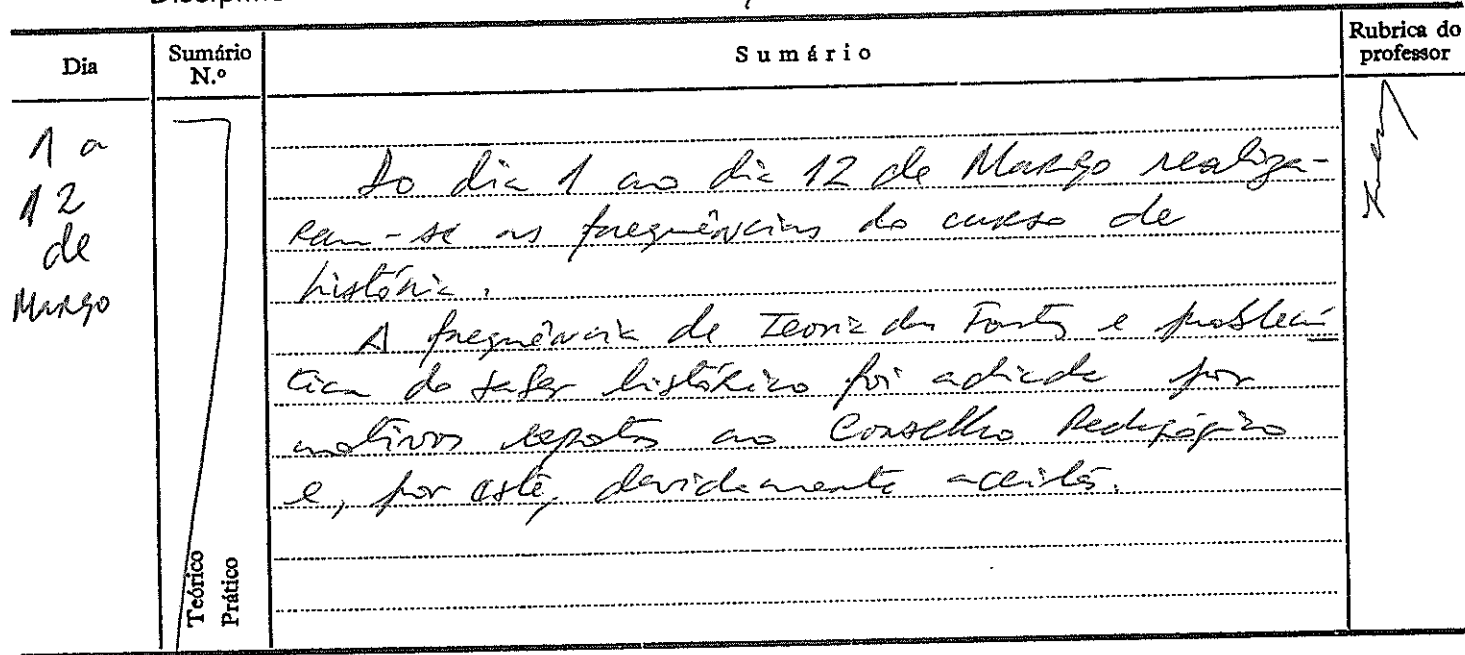 Dia
Sumário N.º
Sumário
Rubrica do professor
1 a
12
de
Março
Do dia 1 ao dia 12 de Março realiza-
ram-se as frequências do curso de
história.
A frequência de Teoria das Fontes e problemá
tica do saber histórico foi adiada por
motivos expostos ao Conselho Pedagógico
e, por este, devidamente aceites.
Teórico
Prático